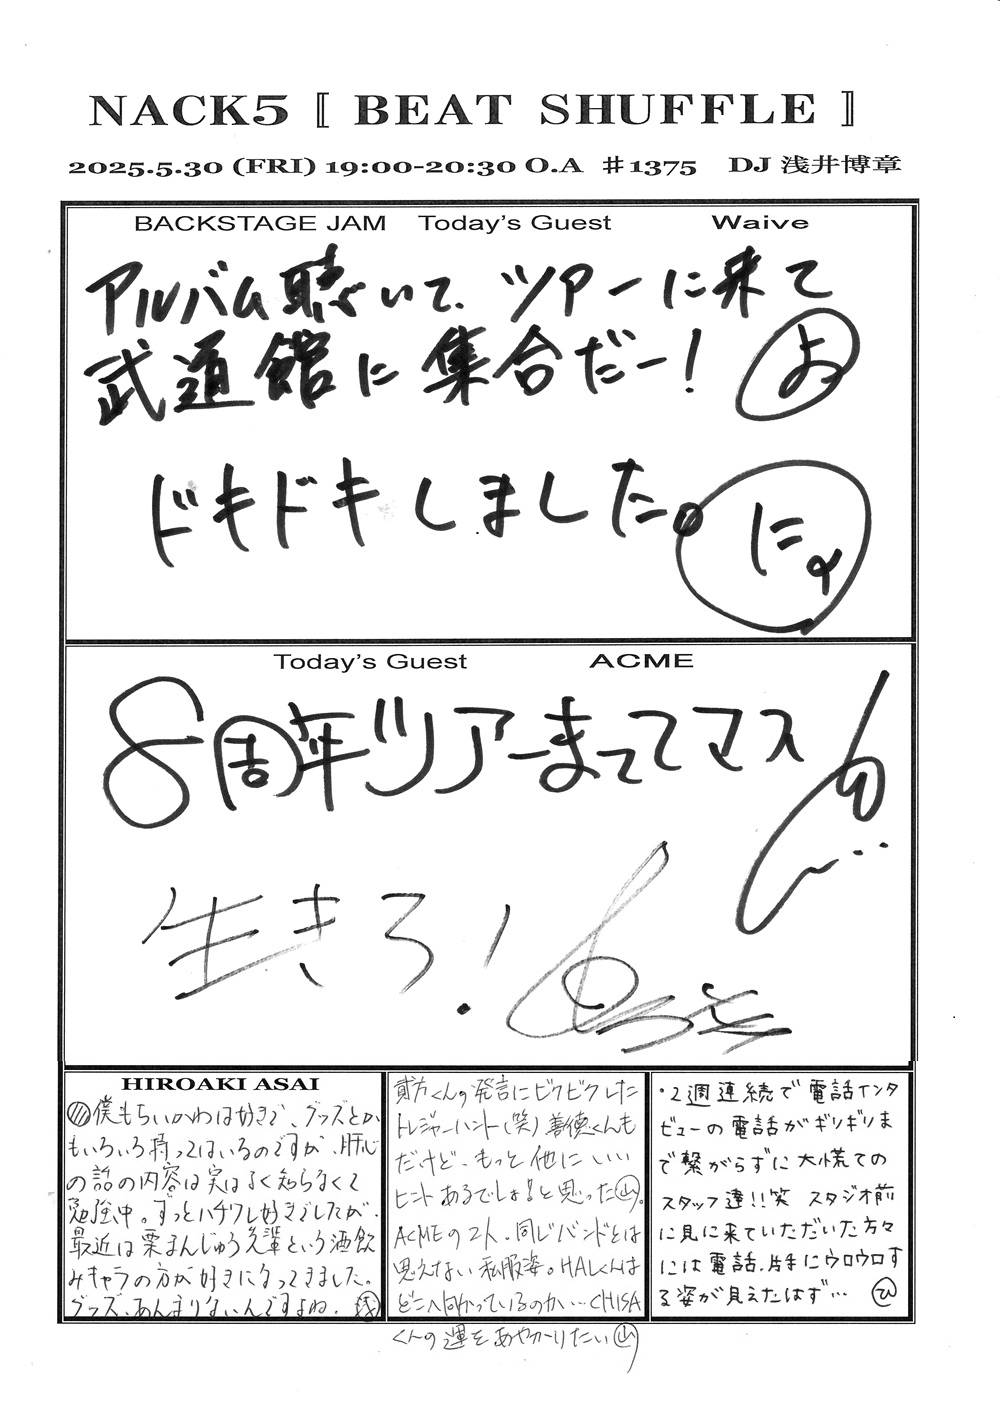 NACK5 〚 BEAT SHUFFLE 〛
2025.5.30 (FRI) 19:00-20:30 O.A ♯1375 DJ 浅井博章
BACKSTAGE JAM Today's Guest Waive
アルバム聴いて、ツアーに来て
武道館に集合だー! よ
ドキドキしました。 にょ
Today's Guest ACME
8周年ツアーまっててマス
生きろ!
HIROAKI ASAI
僕もちいかわは好きで、グッズとか
もいろいろ持ってはいるのですが、肝心
の話の内容は実はよく知らなくて
勉強中。ずっとハチワレ好きでしたが、
最近は栗まんじゅう先輩という酒飲
みキャラの方が好きになってきました。
グッズ、あんまりないんですよね。 浅
貮方くんの発言にビクビクした
トレジャーハント(笑)善徳くんも
だけど、もっと他にいい
ヒントあるでしょ!と思った山。
ACMEの2人、同じバンドとは
思えない私服姿。HALくんは
どこへ向かっているのか…CHISA
くんの運をあやかりたい山
・2週連続で電話インタ
ビューの電話がギリギリま
で繋がらずに大慌ての
スタッフ達!!笑 スタジオ前
に見に来ていただいた方々
には電話片手にウロウロす
る姿が見えたはず… ひ